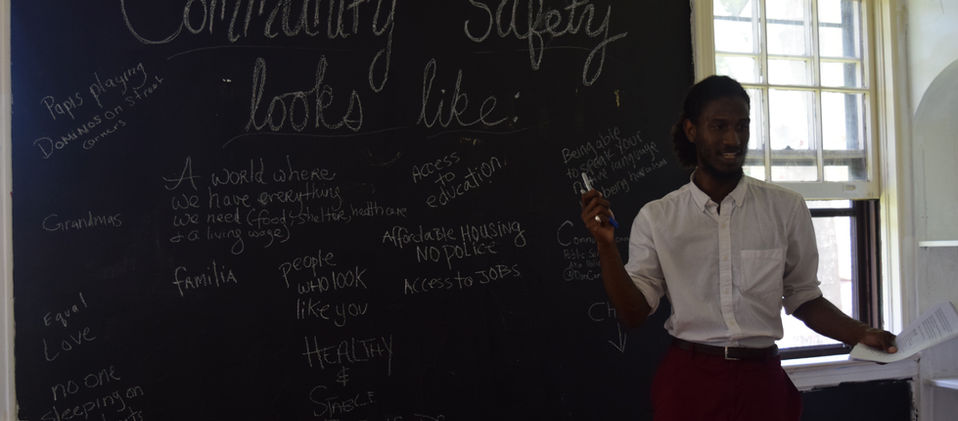 Community Safety
looks like:
Papis playing
Dominos on Street
corners
A world where
we have everything
we need (food, shelter, healthcare
& a living wage)
Access
to
education
Being able
to speak your
native language
being
Grandmas
Affordable Housing
NO POLICE
familia
people
who look
like you
Access to JOBS
Equal
Love
HEALTHY
&
STABLE
no one
sleeping on